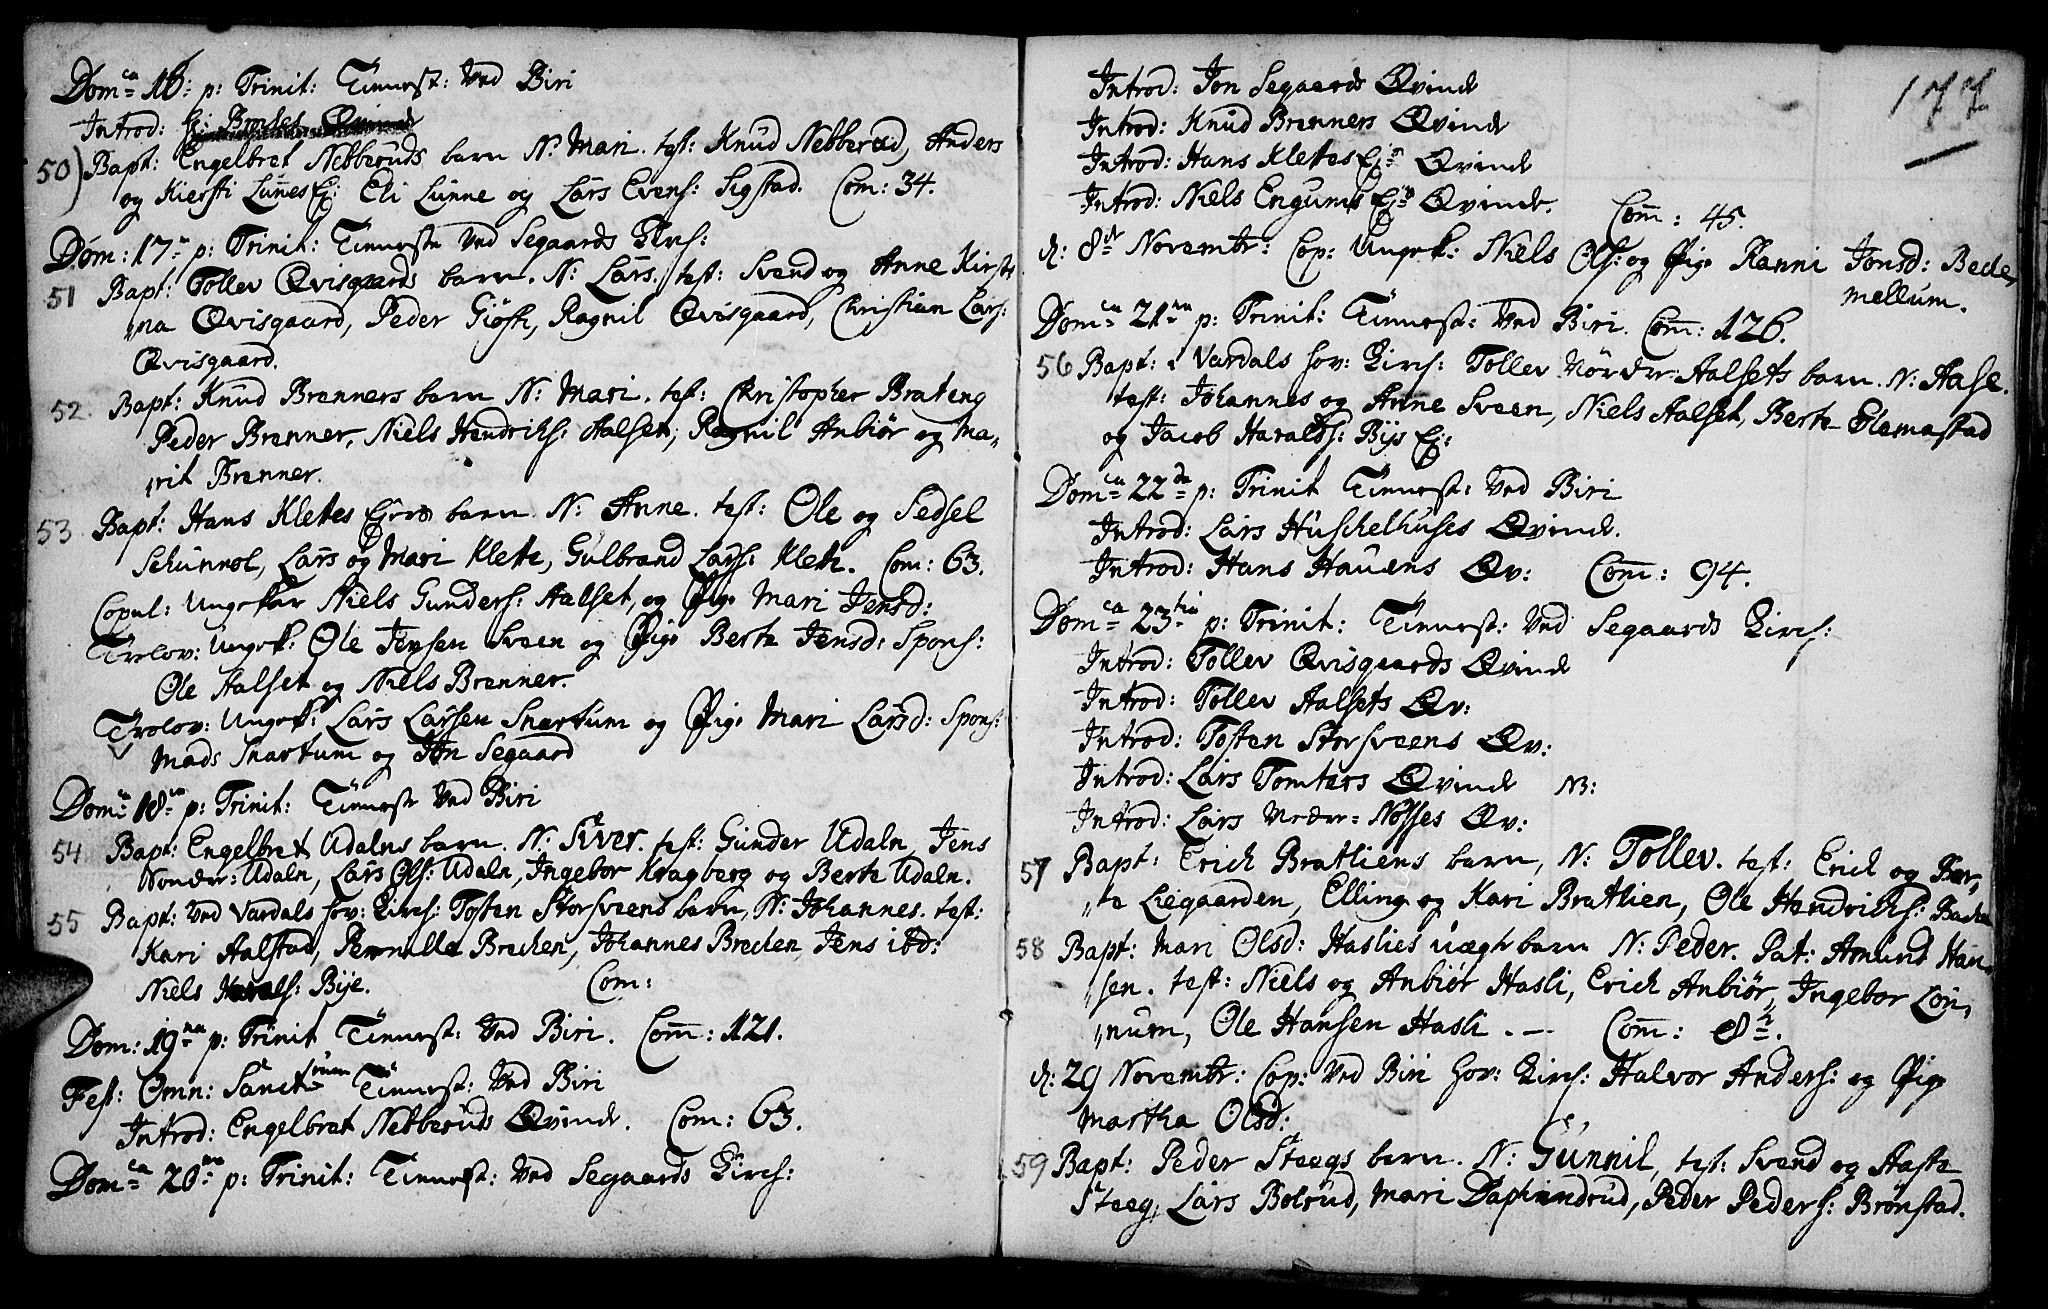 Dom:ca 16: p: Trinit: Tienest: Ved Biri
Introd:
50) Bapt: Engelbret Nebberuds barn N: Mari. test: Knud Nebberud, Anders
og Kiersti Lunnes Ej: Eli Lunne og Lars Evens: Sigstad. Com: 34.
Dom: 17de p: Trinit: Tieneste Ved Segaards Kirch:
51 Bapt: Tollev Qvisgaards barn. N: Lars. test: Svend og Anne Kirsti„
„na Qvisgaard, Peder Giøsti, Ragnil Qvisgaard, Christian Lars:
Qvisgaard.
52. Bapt: Knud Brenners barn N: Mari. test: Christopher Brateng
Peder Brenner, Niels Hendrichs: Aalset, Ragnil Anbiør og Ma„
„rit Brenner.
53 Bapt: Hans Kletes Ejes barn N: Anne. test: Ole og Sedsel
Schunnol, Lars og Mari Klete, Gulbrand Lars: Klete. Com: 63.
Copul: Ungekar Niels Gunders: Aalset, og Pige Mari Jensd:
Trolov: Ungek: Ole Jensen Sveen og Pige Berte Jensd: Spons:
Ole Aalset og Niels Brenner.
Trolov: Ungek: Lars Larsen Snartum og Pige Mari Larsd: Spons:
Mads Snartum og Jon Segaard
Dom: 18de p: Trinit: Tieneste Ved Biri
54 Bapt: Engelbret Udalns barn. N: Siver. test: Gunder Udaln, Jens
Nordre: Udaln, Lars Ols: Udaln, Ingebor Kragberg og Berte Udaln.
55 Bapt: Ved Vardals hov: Kirch: Tosten Storsveens barn, N: Johannes. test:
Kari Aalstad, Pernille Brechen, Johannes Brechen, Jens ibd:
Niels Haralds: Bije. Com:
Dom: 19na p: Trinit Tienest: Ved Biri. Com: 121.
Fest: Omn: Sanctorum Tienest: Ved Biri
Introd: Engelbret Nebberuds Qvinde. Com: 63.
Dom:ca 20ma p: Trinit: Tienest: Ved Segaards Kirch:
177
Introd: Jon Segaards Qvinde
Introd: Knud Brenners Qvinde
Introd: Hans Kletes Ej: Qvinde
Introd: Niels Engums Ej: Qvinde. Com: 45.
d: 8de Novembr: Cop: Ungek: Niels Ols: og Pige Ranni Jonsd: Bede„
mellum.
Dom:ca 21ma p: Trinit: Tienest: Ved Biri. Com: 126.
56 Bapt: i Vardals hov: Kirch: Tollev Nordre-Aalsets barn. N: Aase.
test: Johannes og Anne Sveen, Niels Aalset, Berte Glemastad
og Jacob Haralds: Bijs Ej:
Dom:ca 22da p: Trinit Tienest: Ved Biri
Introd: Lars Huschelhuses Qvinde.
Introd: Hans Hauens Qv: Com: 94.
Dom:ca 23tia p: Trinit: Tienest: Ved Segaards Kirch:
Introd: Tollev Qvisgaards Qvinde
Introd: Tollev Aalsets Qv:
Introd: Tosten Storsveens Qv:
Introd: Lars Tomters Qvinde NB:
Introd: Lars Neder-Nøsses Qv:
57 Bapt: Erich Bratliens barn, N: Tollev. test: Erich og Ber„
„te Liegaarden, Elling og Kari Bratlien, Ole Hendrichs: Bache
58 Bapt: Mari Olsd: Haslies uægte barn N: Peder. Pat: Amund Han„
„sen. test: Niels og Anbiør Hasli, Erich Anbiør, Ingebor Lon„
„num, Ole Hansen Hasli. — Com: 82.
d: 29 Novembr: Cop: Ved Biri hov: Kirch: Halvor Anders: og Pige
Martha Olsd:
59 Bapt: Peder Steegs barn. N: Gunnil, test: Svend og Aaste
Steeg, Lars Bolrud, Mari Daphinrud, Peder Peders: Brønstad.